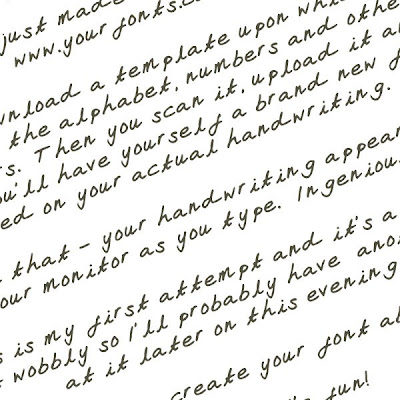 just made
www.yourfonts.c
wnload a template upon whi
the alphabet, numbers and othe
rs. Then you scan it, upload it a
ou'll have yourself a brand new f
ed on your actual handwriting.
that - your handwriting appear
our monitor as you type. Ingeniou
s is my first attempt and it's a
wobbly so I'll probably have ano
at it later on this evening
create your font a
fun!